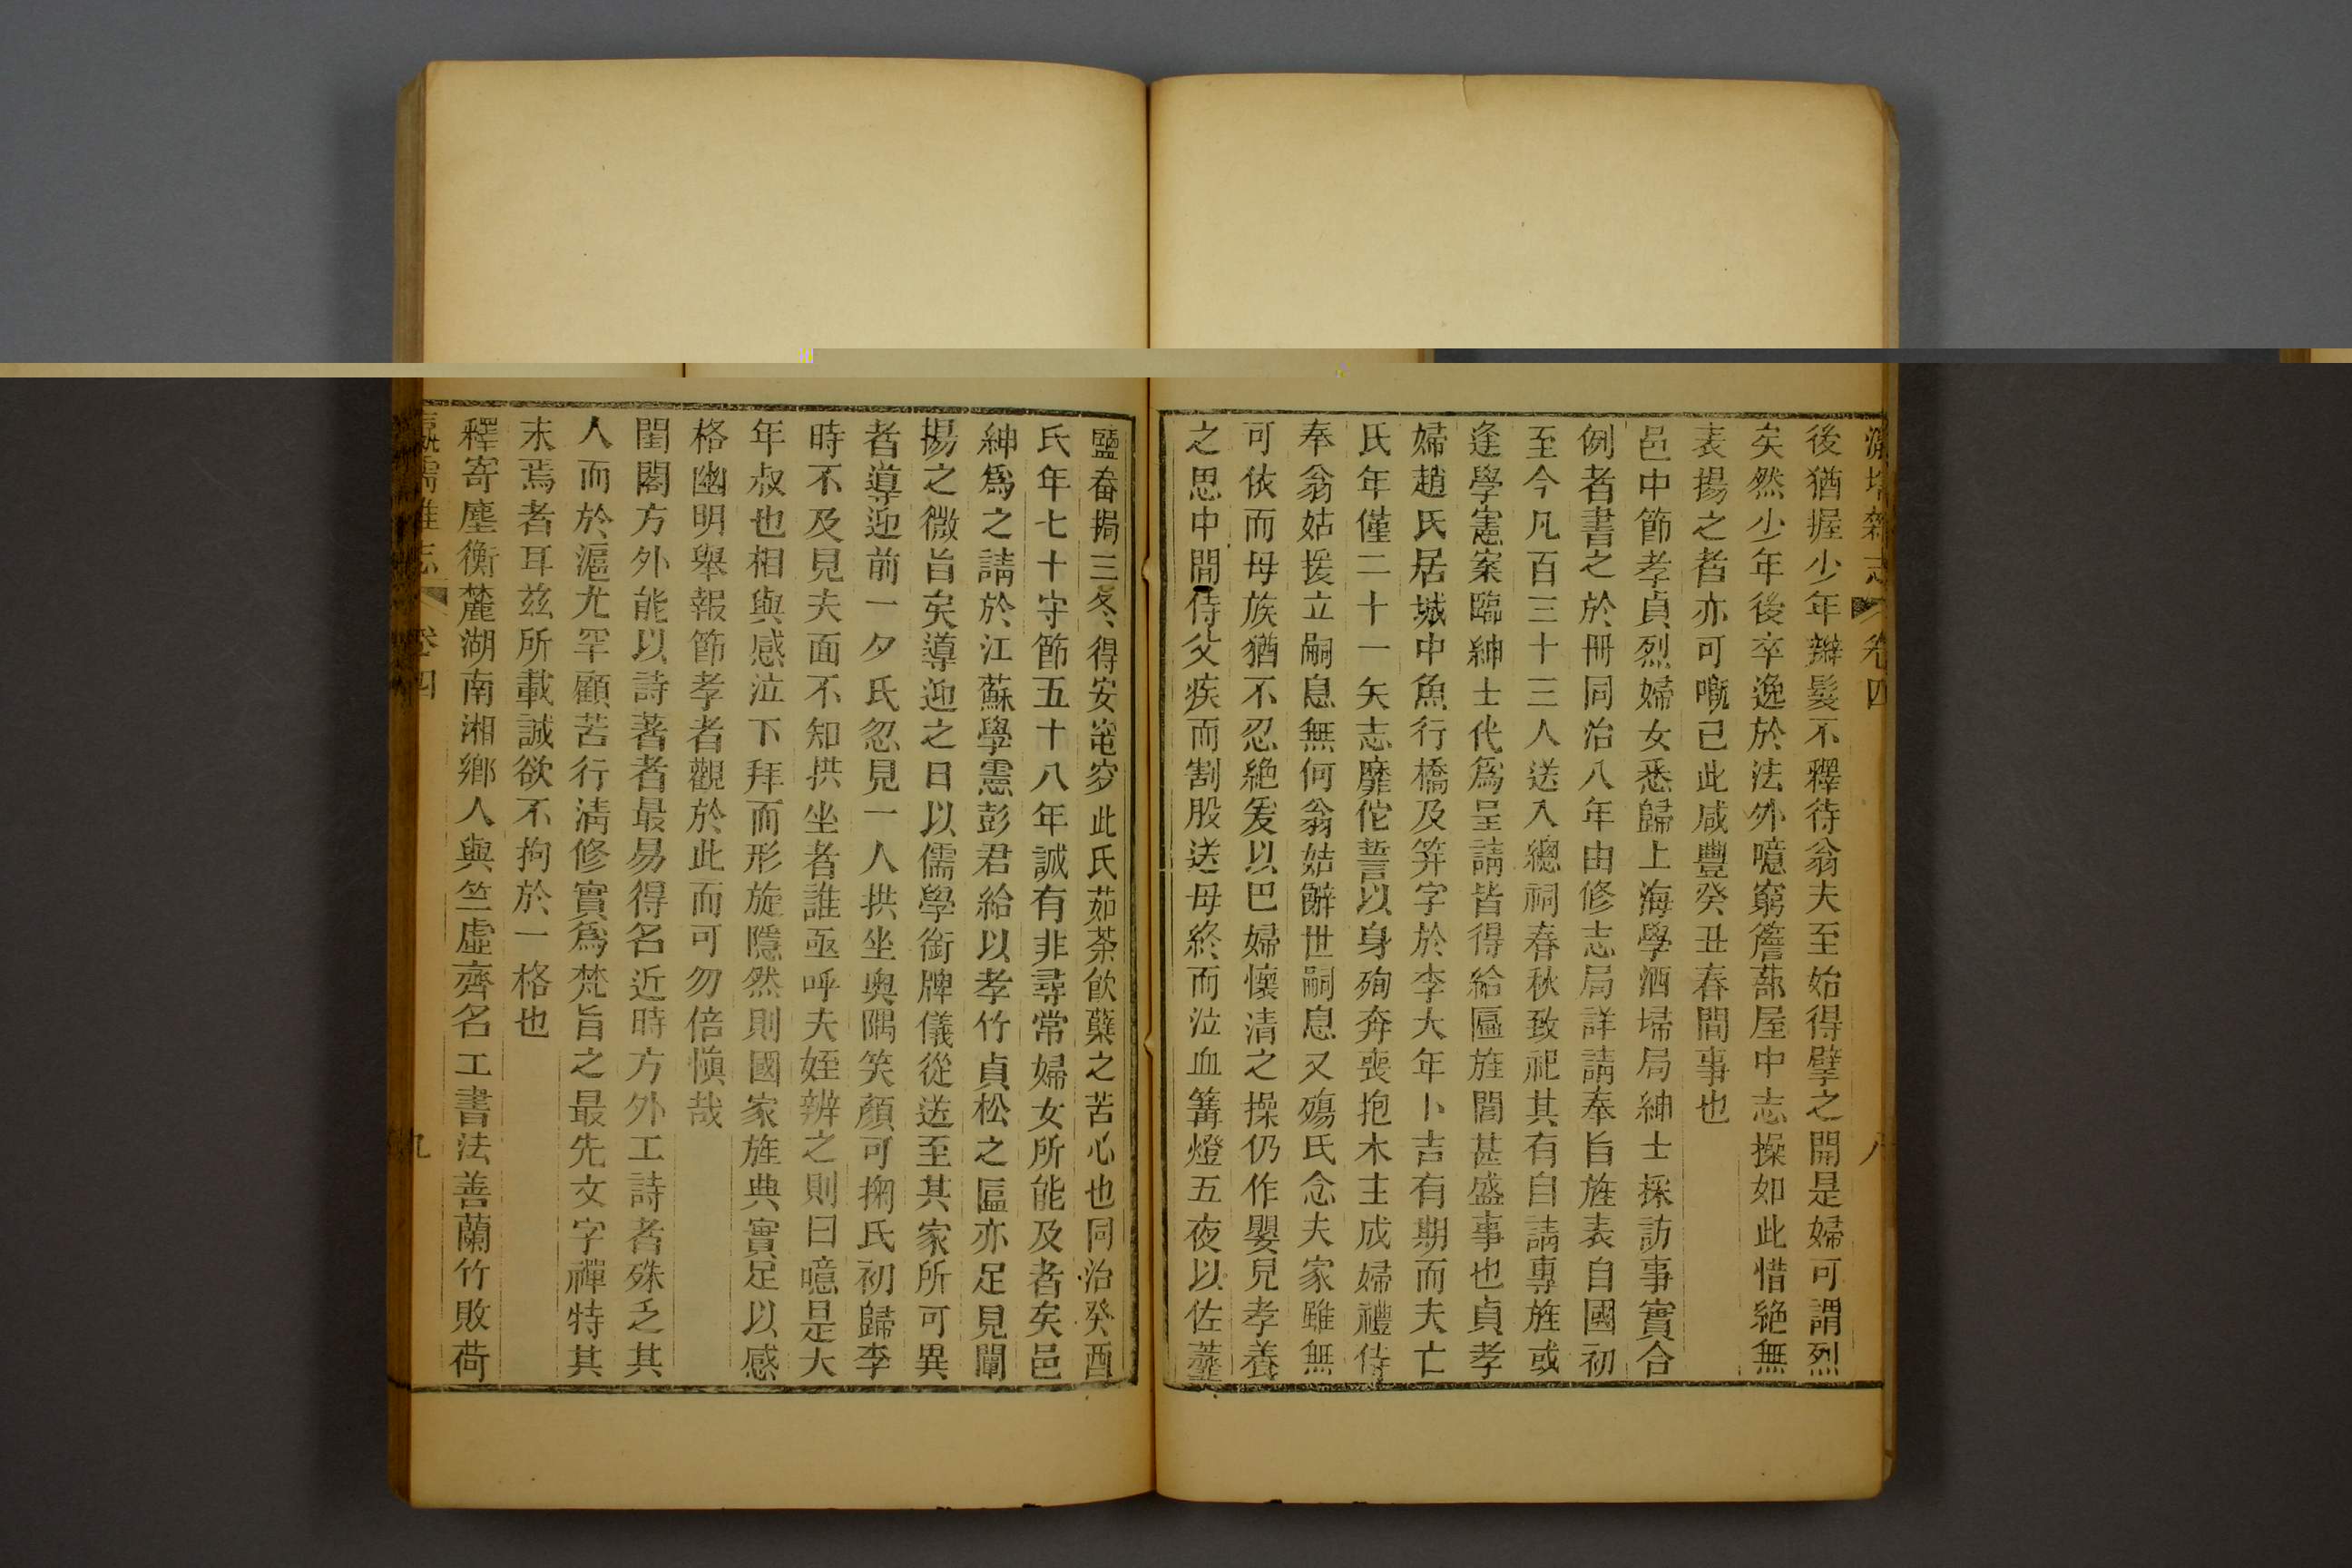 瀛壖雜志 卷四 八
後猶握少年辮髮不釋待翁夫至始得擘之開是婦可謂烈
矣然少年後卒逸於法外噫窮簷蔀屋中志操如此惜絕無
表揚之者亦可嘅已此咸豐癸丑春間事也
邑中節孝貞烈婦女悉歸上海學洒埽局紳士採訪事實合
例者書之於冊同治八年由修志局詳請奉旨旌表自國初
至今凡百三十三人送入總祠春秋致祀其有自請專旌或
逢學憲案臨紳士代爲呈請皆得給匾旌閭甚盛事也貞孝
婦趙氏居城中魚行橋及笄字於李大年卜吉有期而夫亡
氏年僅二十一矢志靡佗誓以身殉奔喪抱木主成婦禮侍
奉翁姑援立嗣息無何翁姑辭世嗣息又殤氏念夫家雖無
可依而母族猶不忍絕爰以巴婦懷清之操仍作嬰兒孝養
之思中間侍父疾而割股送母終而泣血篝燈五夜以佐虀
鹽畚挶三冬得安窀穸此氏茹荼飮蘗之苦心也同治癸酉
氏年七十守節五十八年誠有非尋常婦女所能及者矣邑
紳爲之請於江蘇學憲彭君給以孝竹貞松之匾亦足見闡
揚之微旨矣導迎之日以儒學銜牌儀從送至其家所可異
者導迎前一夕氏忽見一人拱坐奧隅笑顏可掬氏初歸李
時不及見夫面不知拱坐者誰亟呼夫姪辨之則曰噫是大
年叔也相與感泣下拜而形旋隱然則國家旌典實足以感
格幽明舉報節孝者觀於此而可勿倍愼哉
閨閣方外能以詩著者最易得名近時方外工詩者殊乏其
人而於滬尤罕顧苦行淸修實爲梵旨之最先文字禪特其
末焉者耳茲所載誠欲不拘於一格也
釋寄塵衡麓湖南湘鄉人與竺虛齊名工書法善蘭竹敗荷
瀛壖雜志 卷四 九